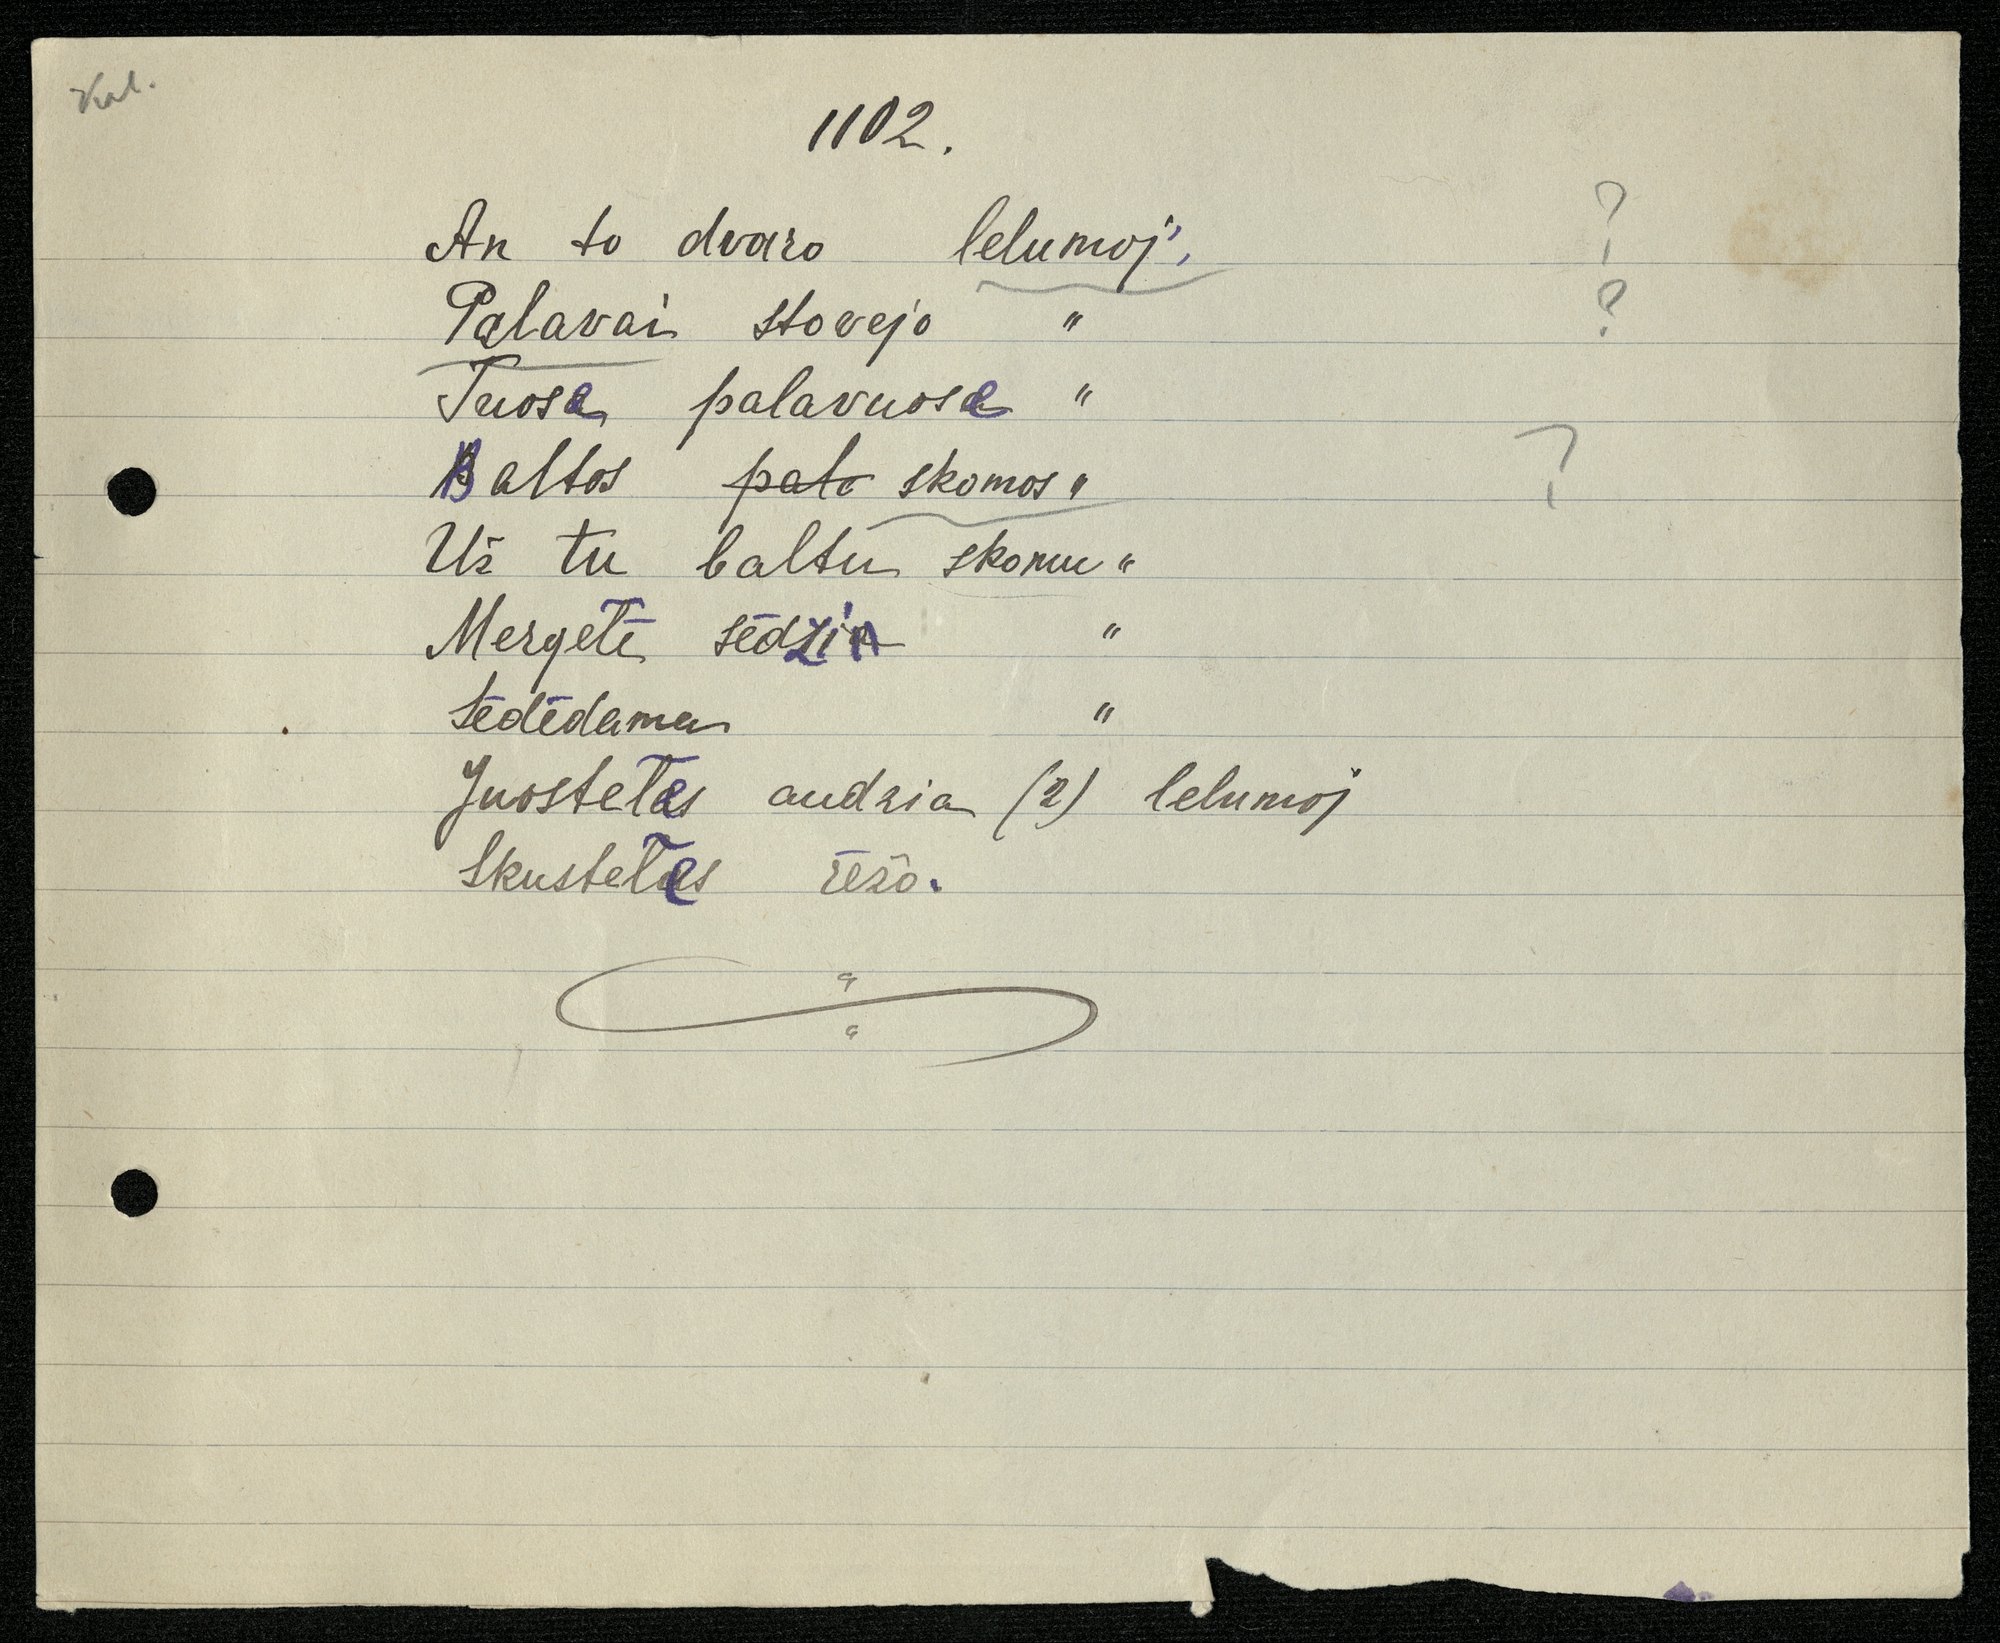 Kal.
1102.
An to dvaro lelumoj, ?
Palavai stovejo " ?
Tuose palavuose "
Baltos pato skomos " ?
Už tu baltu skomu "
Mergetė sėdzia "
Sėdėdama "
Juostetes audzia (2) lelumoj
Skustetes rėžo.